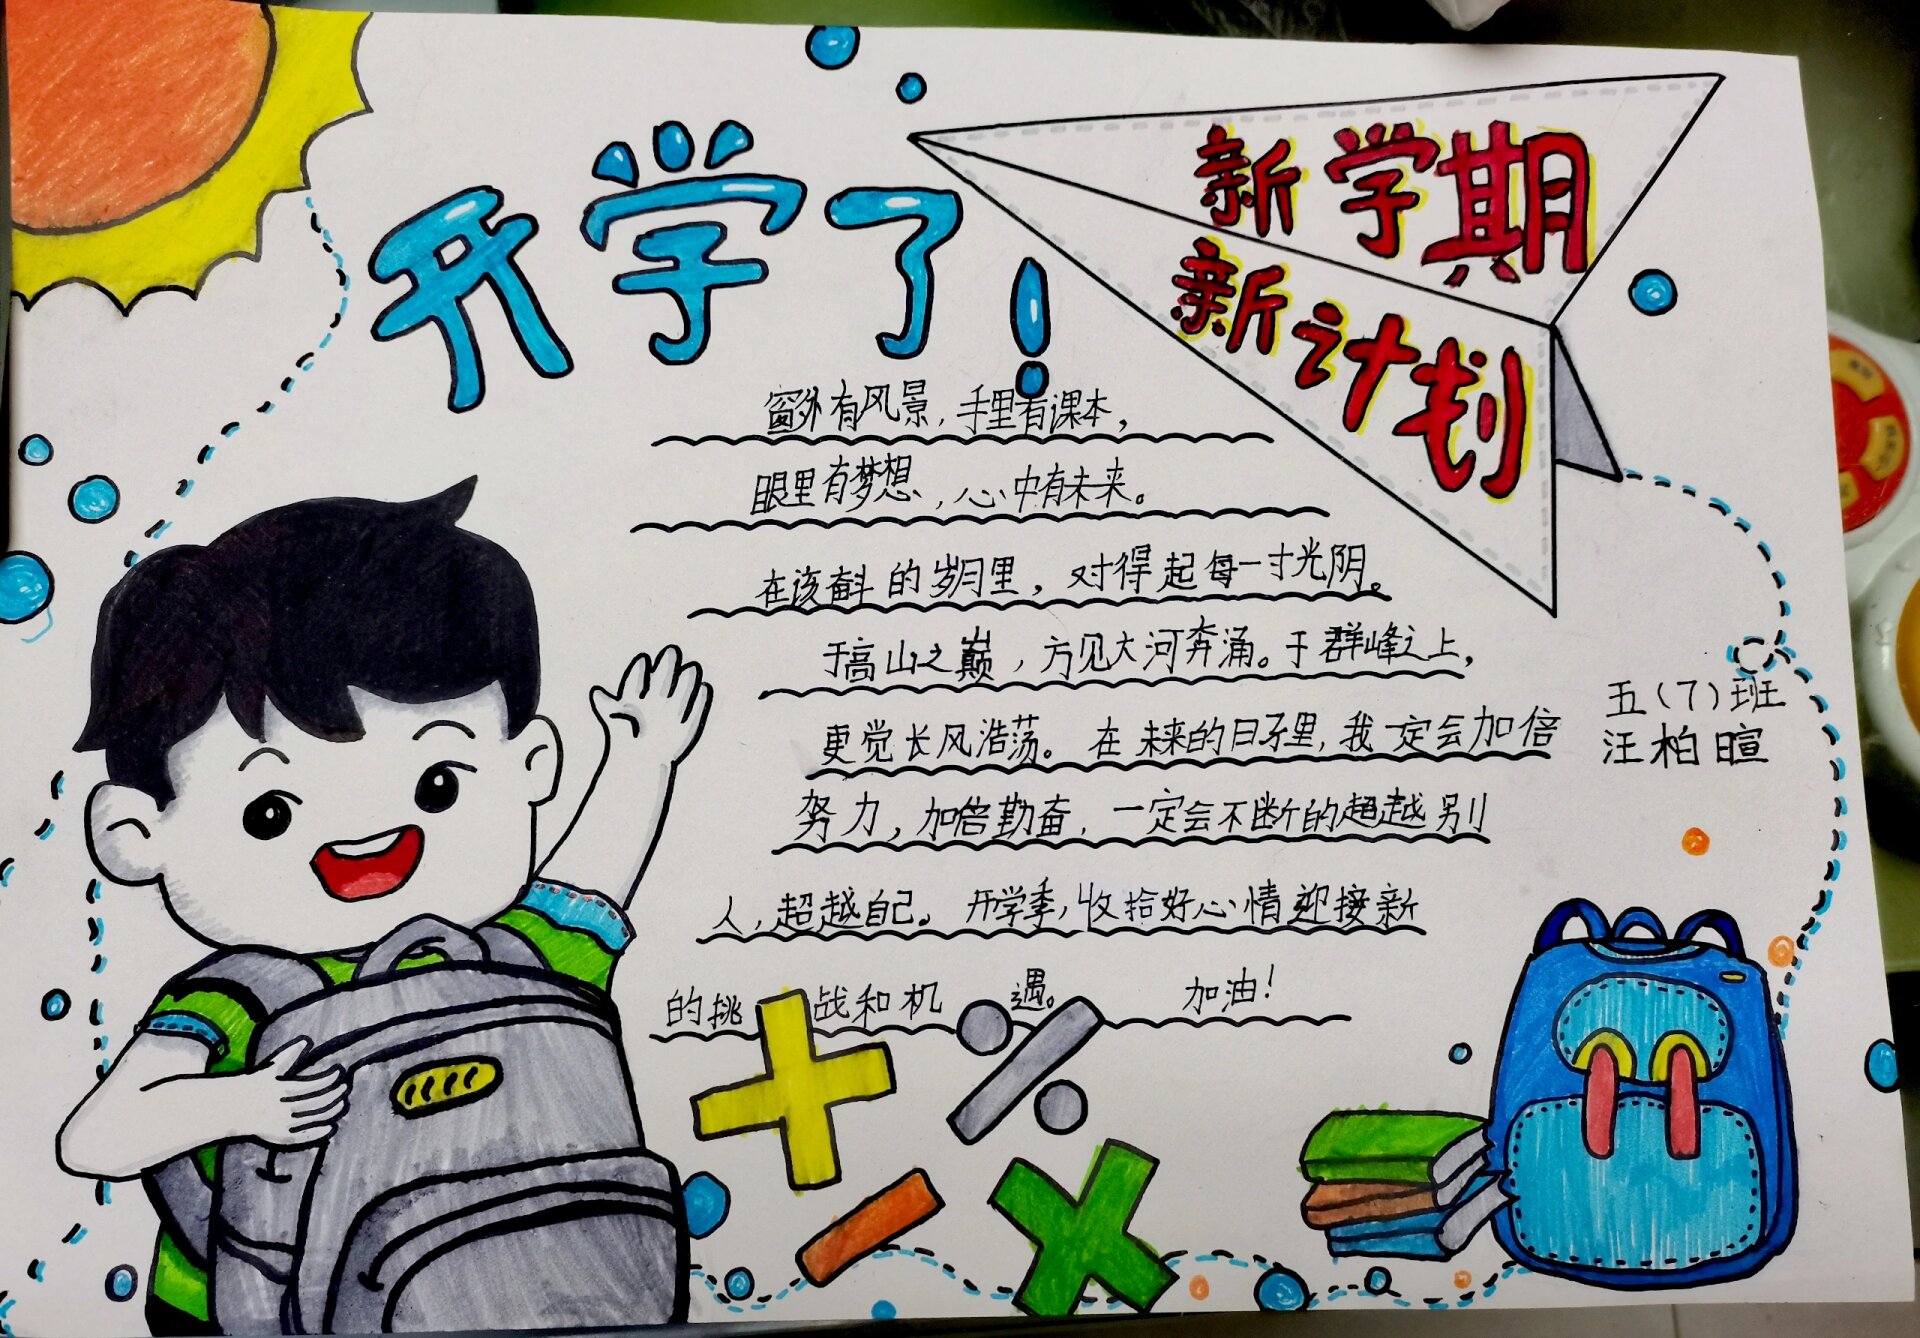 开学了!
新学期
新计划
窗外有风景,手里有课本,
眼里有梦想,心中有未来。
在该奋斗的岁月里,对得起每一寸光阴。
于高山之巅,方见大河奔涌。于群峰之上,
更觉长风浩荡。在未来的日子里,我一定会加倍
努力,加倍勤奋,一定会不断的超越别
人,超越自己。开学季,收拾好心情迎接新
的挑战和机遇。 加油!
五(7)班
汪柏暄